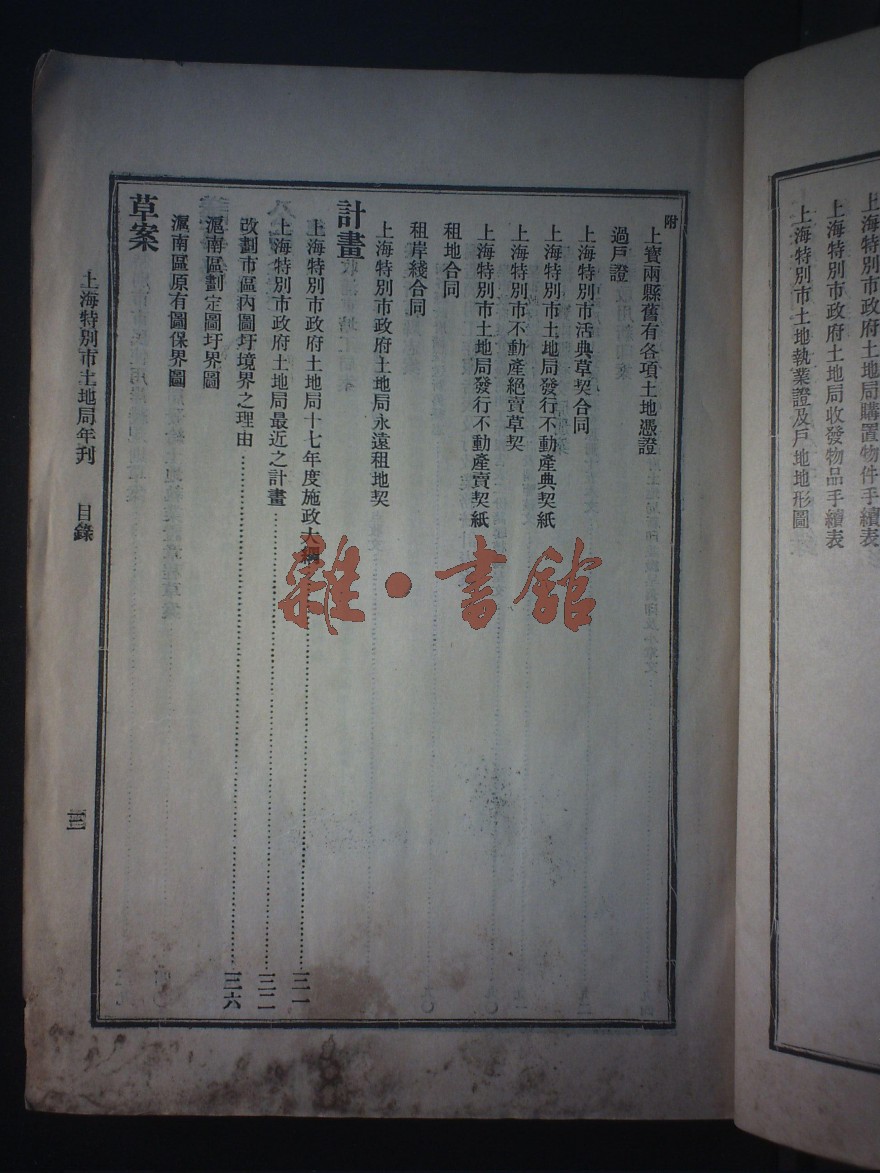 上海特別市政府土地局購置物件手續表
上海特別市政府土地局收發物品手續表
上海特別市土地執業證及戶地地形圖
附
上寶兩縣舊有各項土地憑證
過戶證
上海特別市活典草契合同
上海特別市土地局發行不動產典契紙
上海特別市不動產絕賣草契
上海特別市土地局發行不動產賣契紙
租地合同
租岸綫合同
上海特別市政府土地局永遠租地契
計畫
上海特別市政府土地局十七年度施政大綱……三一
上海特別市政府土地局最近之計畫……三二
改劃市區內圖圩境界之理由……三六
滬南區劃定圖圩界圖
滬南區原有圖保界圖
草案
上海特別市土地局年刊 目錄
三
雜·書館